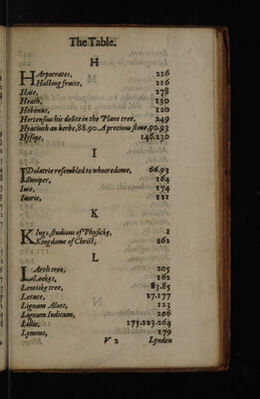 The Table.
H
HArpocrates, 226
Hasting fruite, 216
Haie, 278
Heath, 130
Hebenus, 120
Hortensius his delite in the Plane tree, 249
Hyacinth an herbe, 88.90. A precious stone, 90.93
Hysope, 146.230
I
IDolatrie resembled to whoredome, 66.93
Iuniper, 164
Iuie, 174
Iuorie, 121
K
KIngs, studious of Physicke, 1
Kingdome of Christ, 262
L
LArch tree, 205
Leekes, 162
Lentiske tree, 83.85
Letuce, 27.177
Lignum Aloes, 123
Lignum Indicum, 206
Lillie, 173.223.264
Lymons, 179
V 2 Lynden